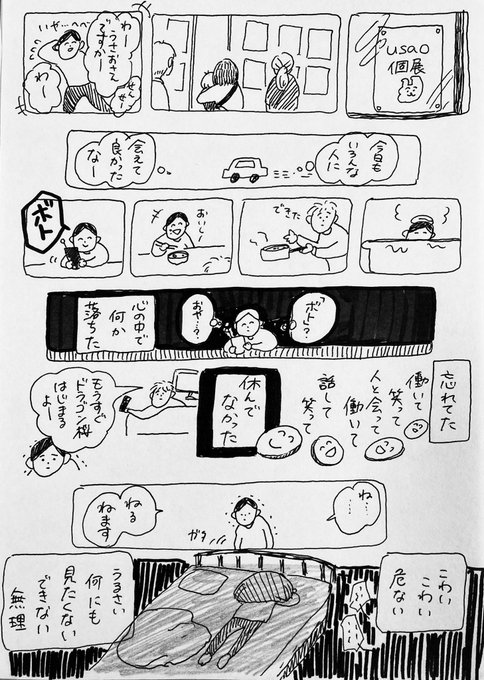 usao
個展
わー
うさおさん
ですか
いやーへへ
せんせー!
わー
今日も
いろんな
人に
会えて
良かった
なー
できた
おいしー
ボトッ
「ボト」?
おや…?
心の中で
何か
落ちた
忘れてた
働いて
笑って
人と会って
働いて
話して
笑って
休んで
なかった
もうすぐ
ドラゴン桜
はじまる
よー
ね…
ねる
ねます
ガラ
こわい
こわい
危ない
うるさい
何にも
見たくない
できない
無理